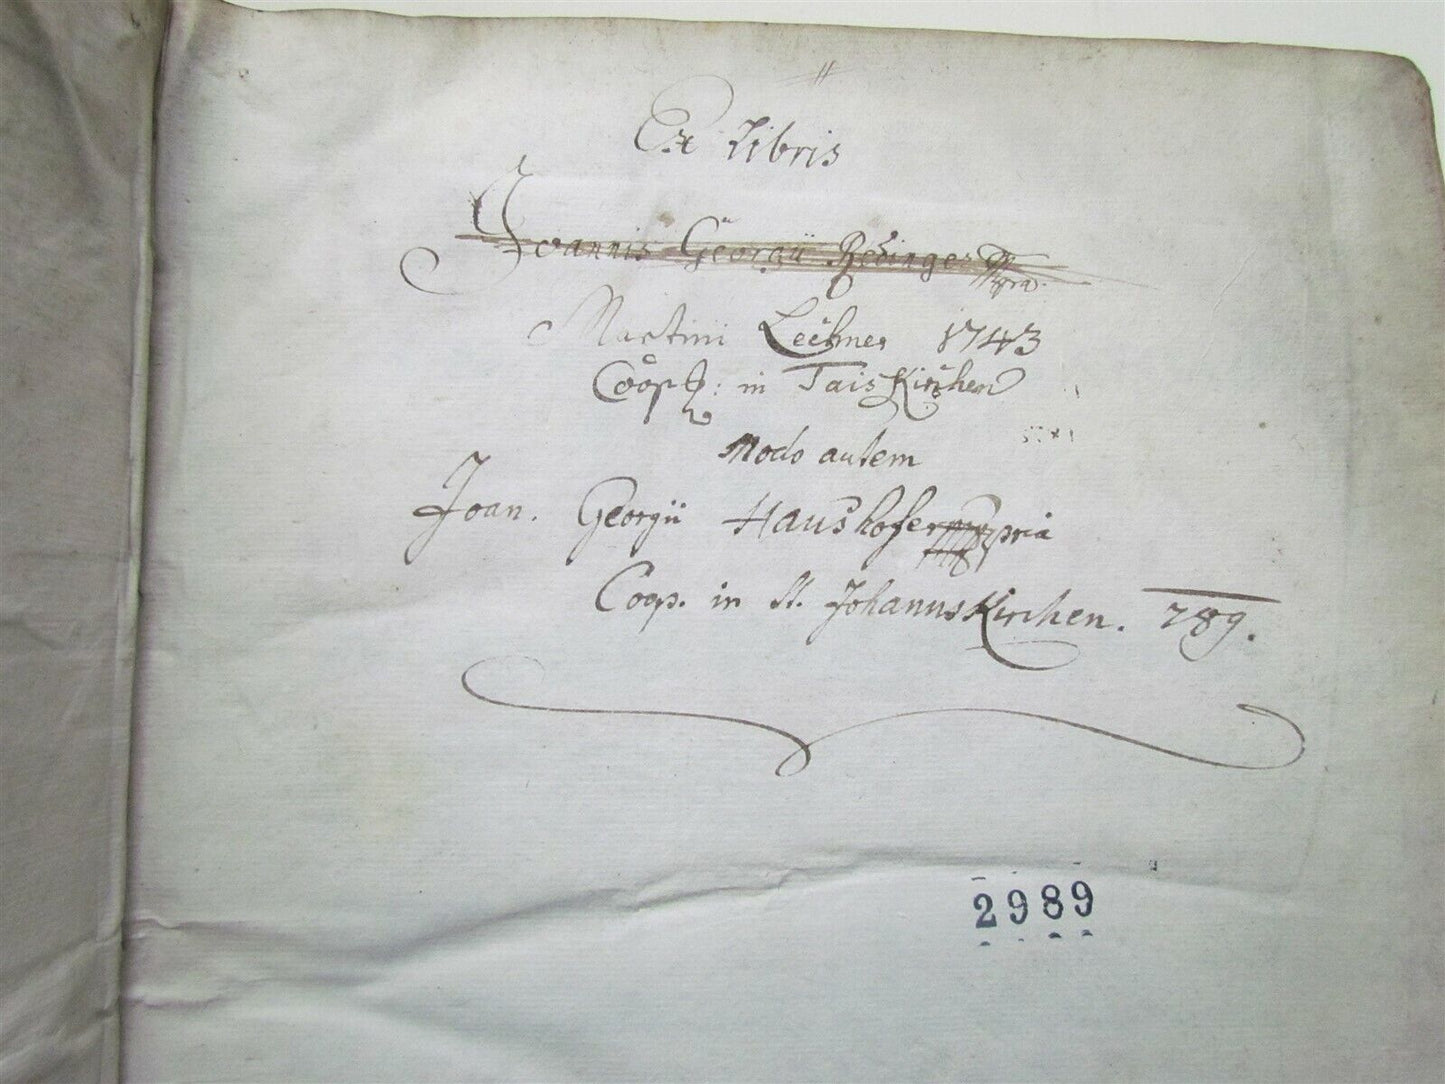 Ex Libris
Joannis Georgii Redinger mpra.
Martini Lechner 1743
Coop. in Taiskirchen
Modo autem
Joan. Georgii Haushofer mpria
Coop. in St. Johannskirchen. 789.
2989